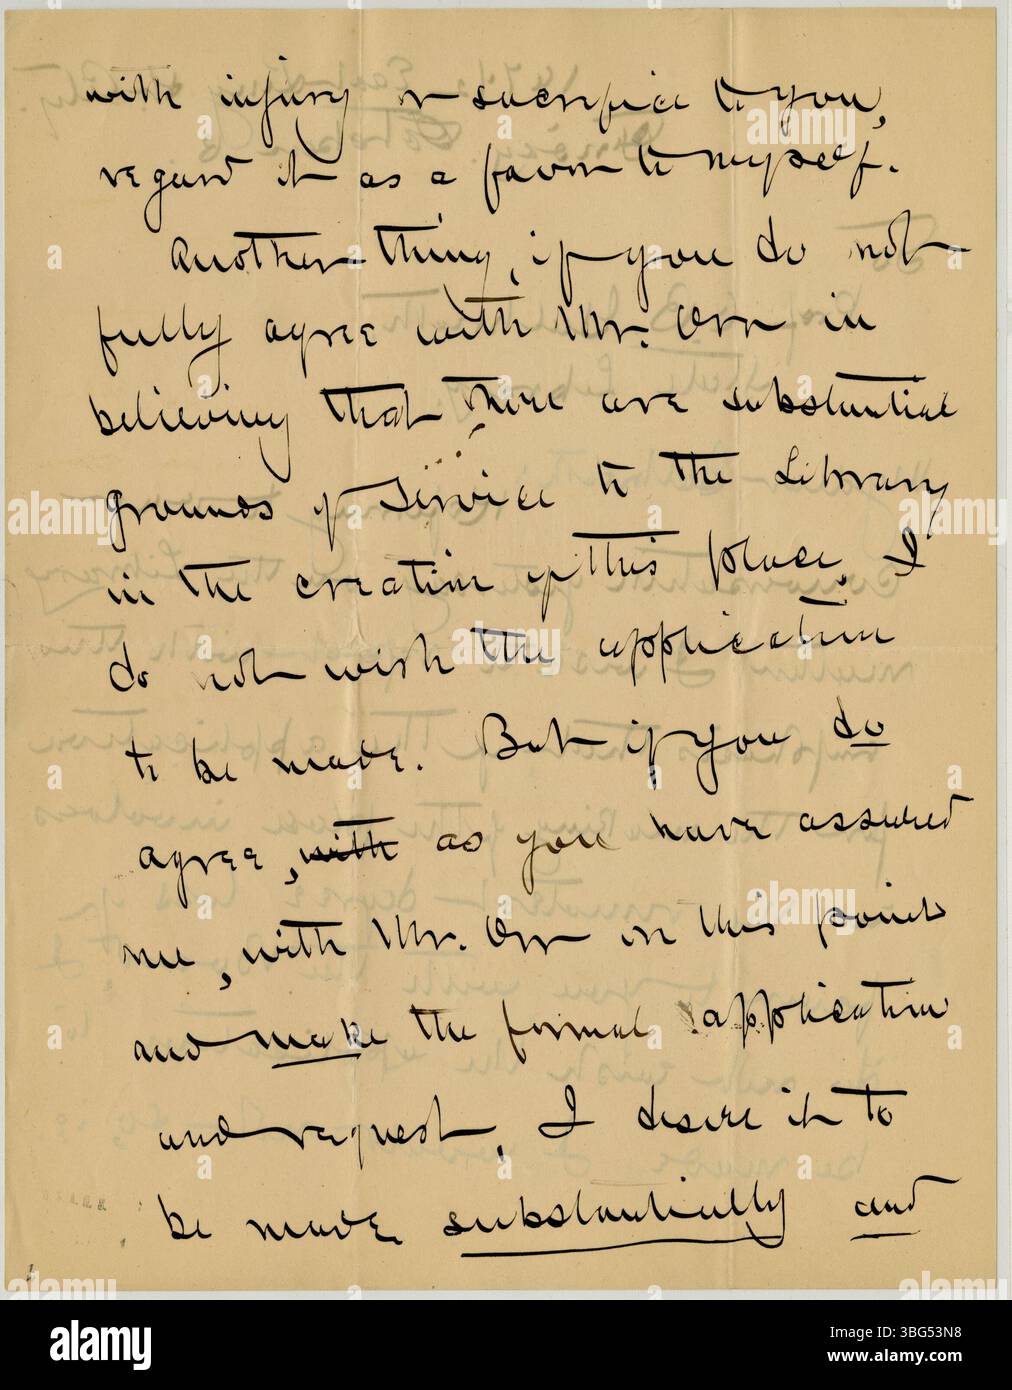 with injury or sacrifice to you,
regard it as a favor to myself.
Another thing, if you do not
fully agree with Mr. Orr in
believing that there are substantial
grounds of service to the Library
in the creation of this place, I
do not wish the application
to be made. But if you do
agree, with as you have assured
me, with Mr. Orr on this point
and make the formal application
and request, I desire it to
be made substantially and
alamy
Image ID: 3BG53N8
www.alamy.com